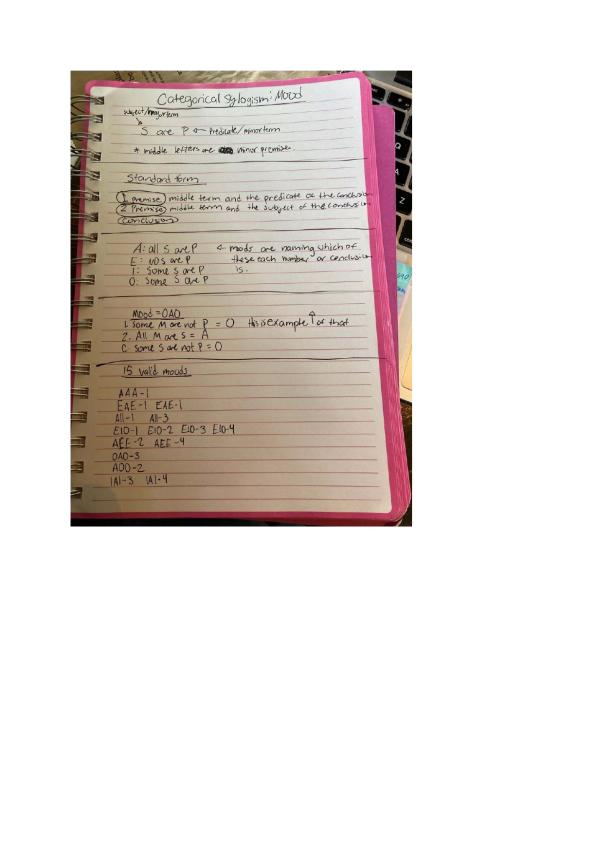 Categorical Sylogism: Mood
subject/major term
S are P ← Predicate/minor term
* middle letters are minor premise.
Standard form
1 premise) middle term and the predicate of the conclusion
2 Premise) middle term and the subject of the conclusion
Conclusion)
A: all S are P ← moods are naming which of
E: no S are P these each number or conclusion
I: Some S are P is.
O: Some S are P
Mood = OAO
1. Some M are not P = O this is example ↑ of that
2. All M are S = A
C. Some S are not P = O
15 valid moods
AAA-1
EAE-1 EAE-1
AII-1 AII-3
EIO-1 EIO-2 EIO-3 EIO-4
AEE-2 AEE-4
OAO-3
AOO-2
IAI-3 IAI-4